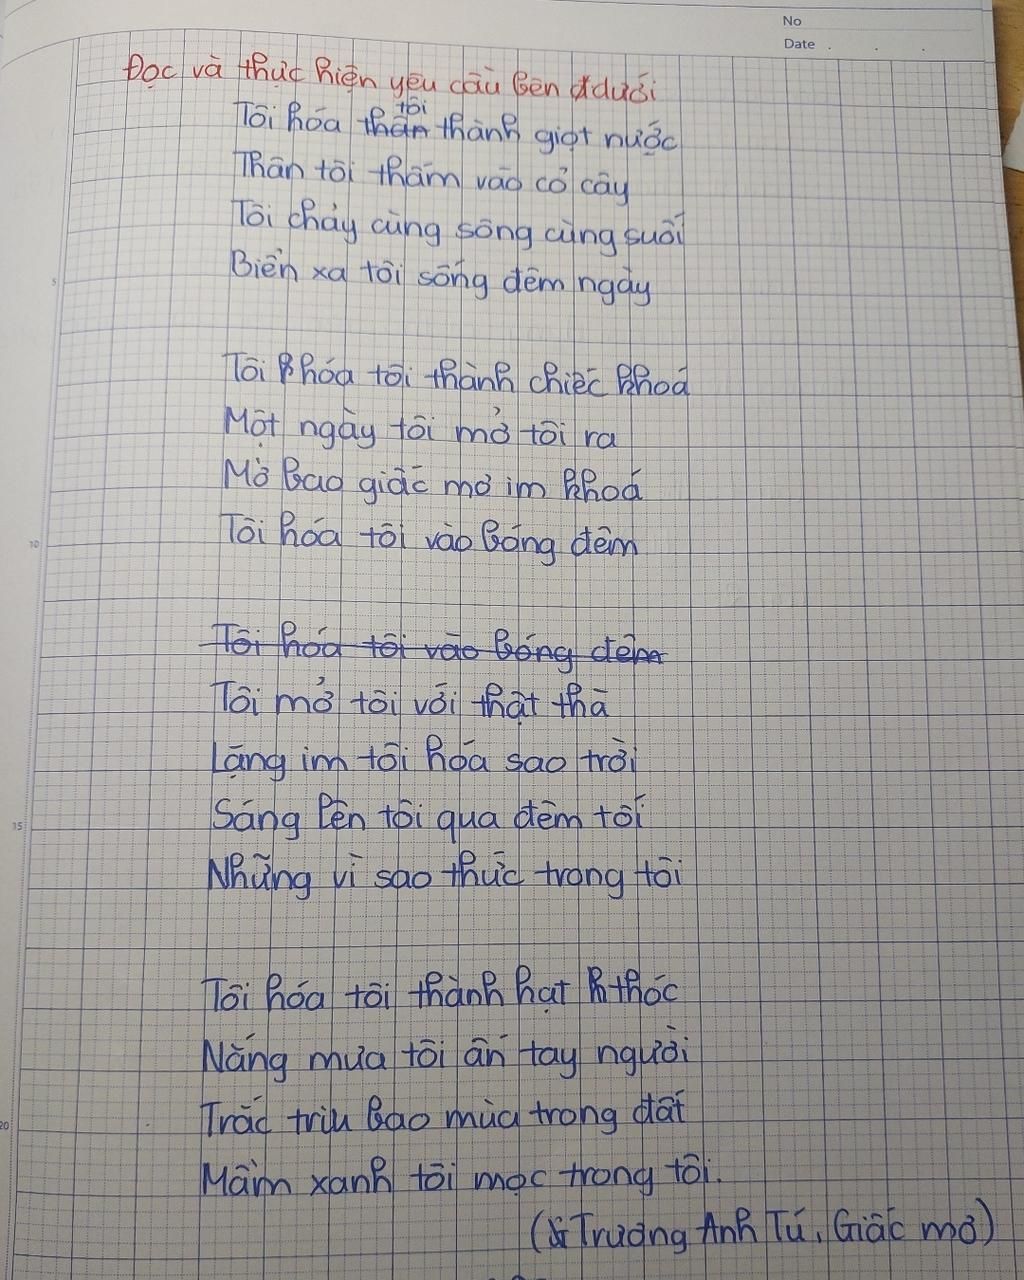 No
Date . . .
Đọc và thực hiện yêu cầu bên dưới
Tôi hóa tôi thành giọt nước
Thân tôi thấm vào cỏ cây
Tôi chảy cùng sông cùng suối
Biển xa tôi sống đêm ngày
Tôi khóa tôi thành chiếc khoá
Một ngày tôi mở tôi ra
Mở bao giấc mơ im khoá
Tôi hóa tôi vào bóng đêm
Tôi hóa tôi vào bóng đêm
Tôi mở tôi với thật thà
Lặng im tôi hóa sao trời
Sáng lên tôi qua đêm tối
Những vì sao thức trong tôi
Tôi hóa tôi thành hạt thóc
Nắng mưa tôi ấn tay người
Trắc trỉu bao mùa trong đất
Mầm xanh tôi mọc trong tôi.
(Trương Anh Tú, Giấc mơ)
5
10
15
20